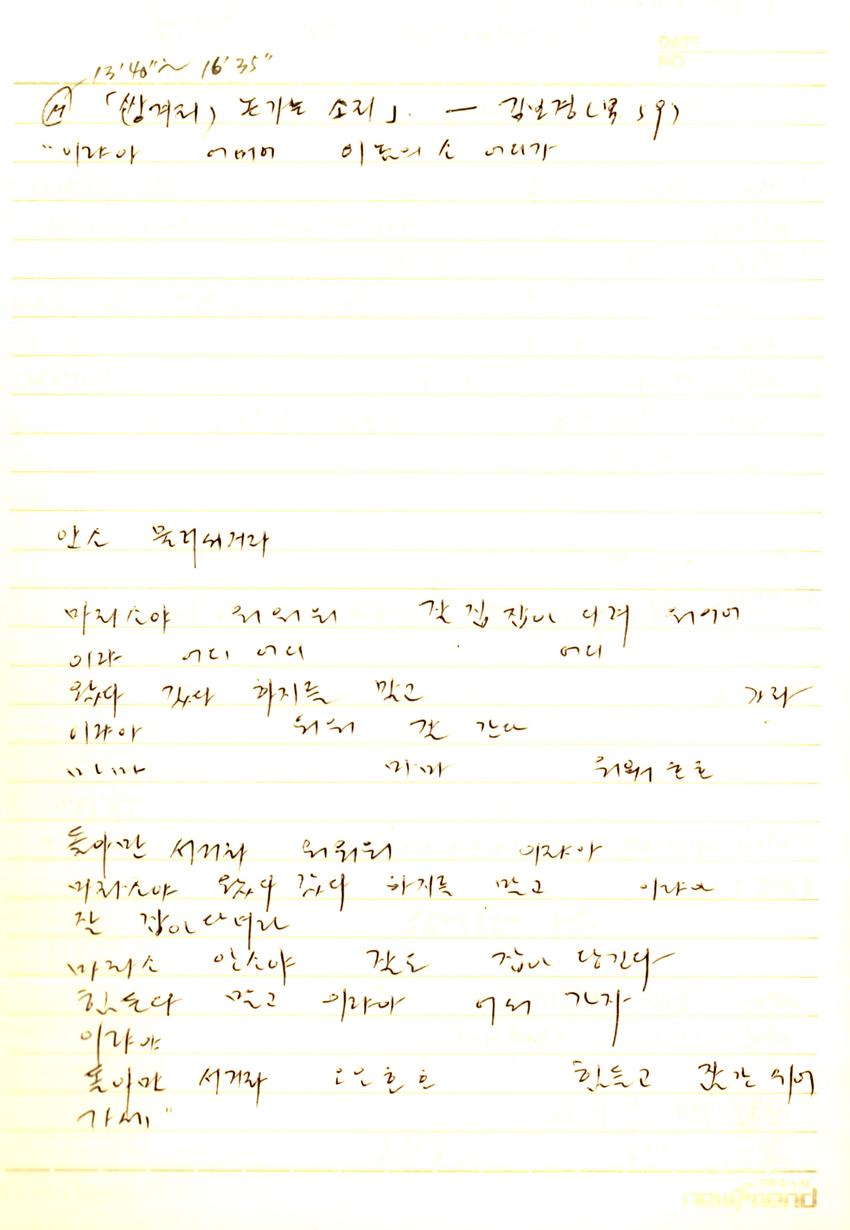 13'40"~ 16'35"
㉦ 「(쌍겨리) 논가는 소리」. — 김보경(男 59)
"이랴아 어머어 이놈의 소 어디가
안소 물러서거라
마라소야 워워워 갓 집 잡아 다겨 워어어
이랴 어디 어디 어디
왔다 갔다 하지를 말고 가라
이랴아 워워 간다
마마 워워 호호
돌아만 서거라 워워워 이랴아
마라소야 왔다 갔다 하지를 말고 이랴아
잘 잡아다녀라
마라소 안소야 잡아 당긴다
힘든다 말고 이랴아 어서 가자
이랴아
돌아만 서거라 힘들고 잠간 쉬어
가세"
DATE
NO
newfriend